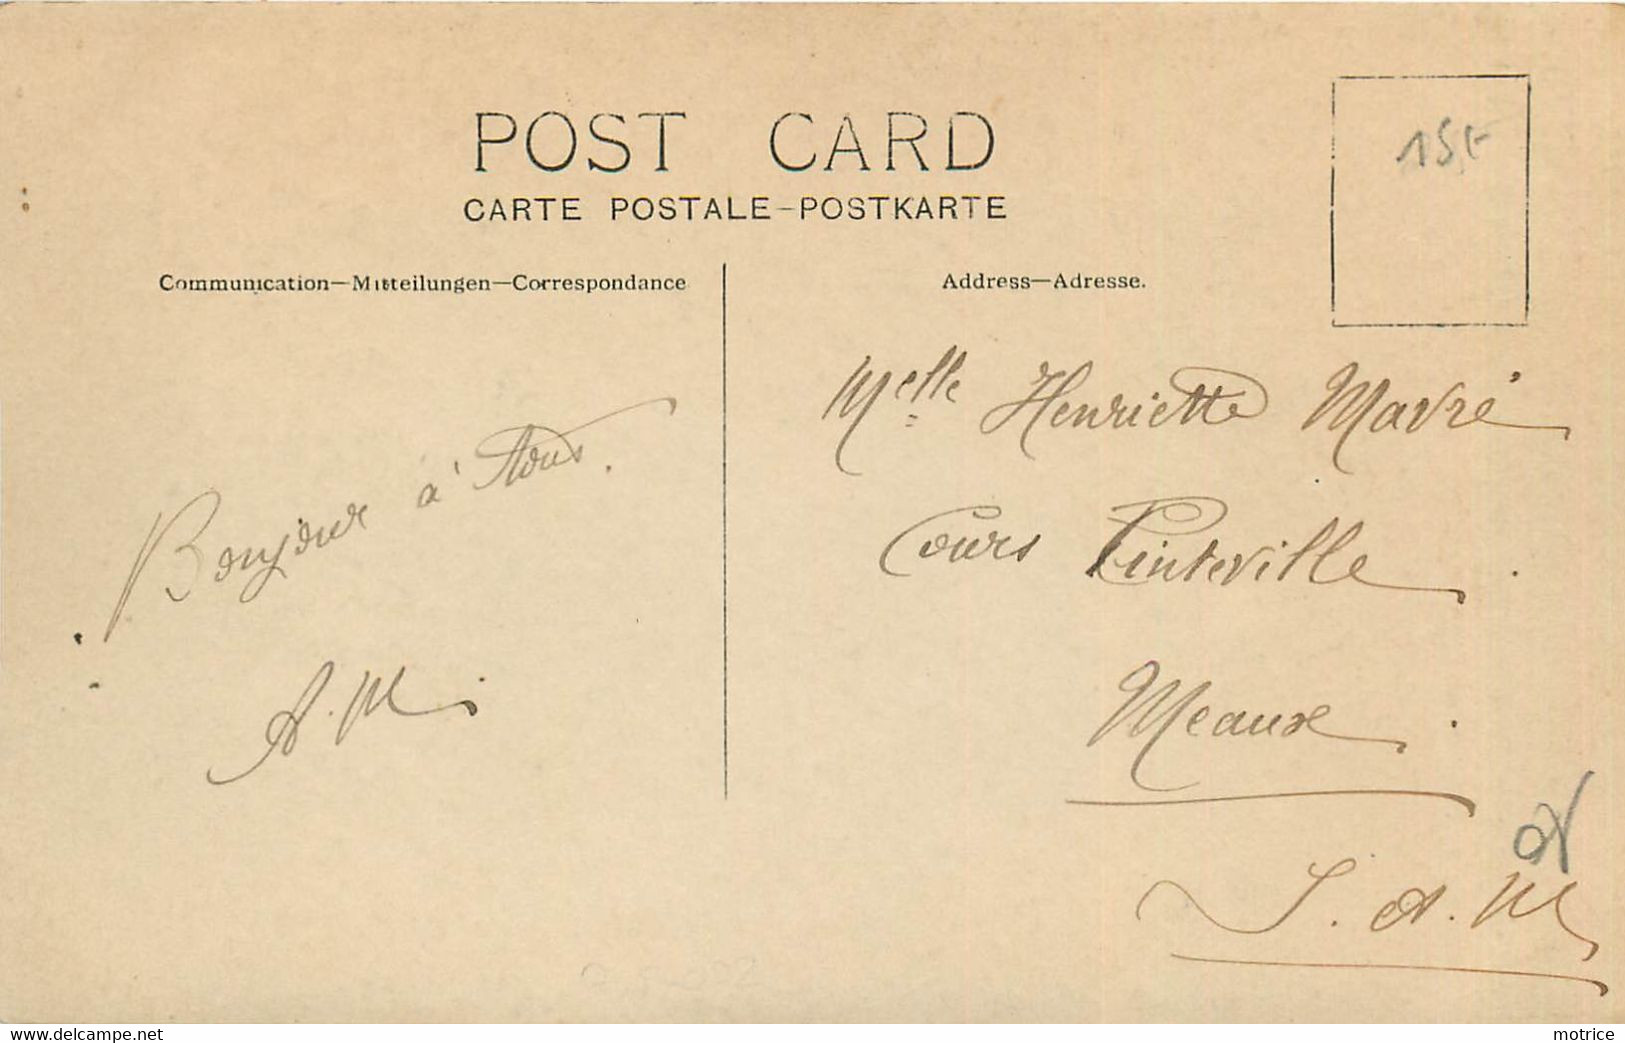 POST CARD
CARTE POSTALE-POSTKARTE
Communication—Mitteilungen—Correspondance
Address—Adresse.
15F
Bonjour à tous.
A. M.
Melle Henriette Mavré
Cours Pinteville.
Meaux.
S. et. M
motrice
https://www.delcampe.net